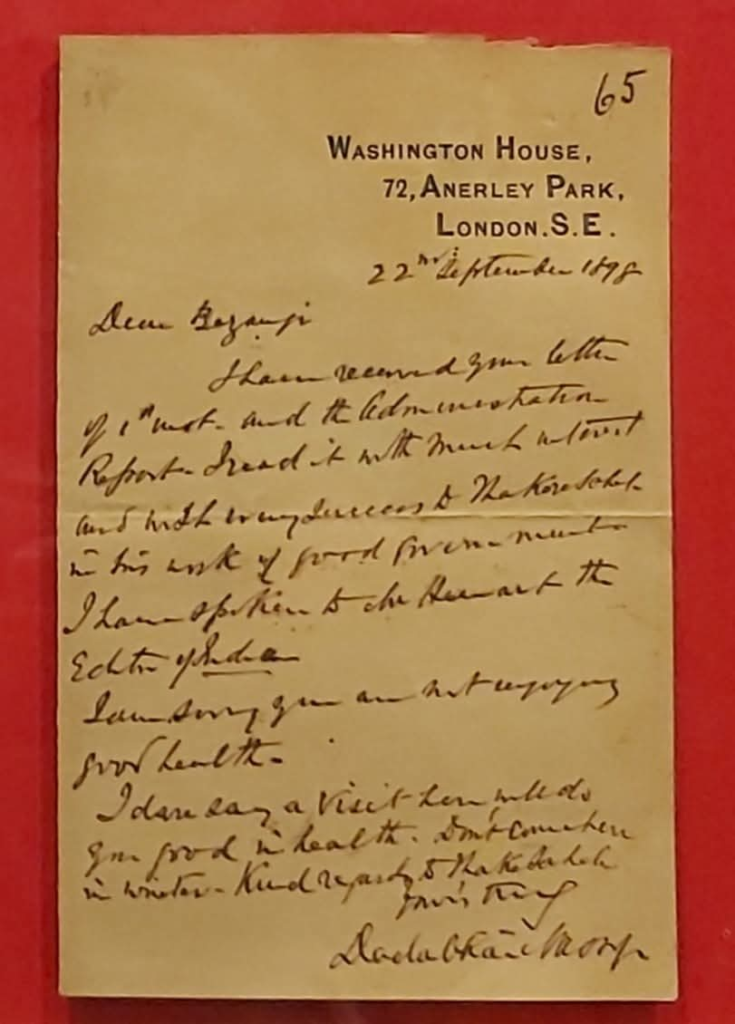 65
WASHINGTON HOUSE,
72, ANERLEY PARK,
LONDON. S.E.
22nd September 1898
Dear Bezanji
I have received your letter
of 1st inst. and the Administration
Report. I read it with much interest
and wish every success to Thakore Saheb
in his work of good government
I have spoken to the
Editor of India
I am sorry you are not enjoying
good health.
I dare say a visit here will do
you good in health. Don't come here
in winter. Kind regards to Thake Saheb
Yours truly
Dadabhai Naoroji